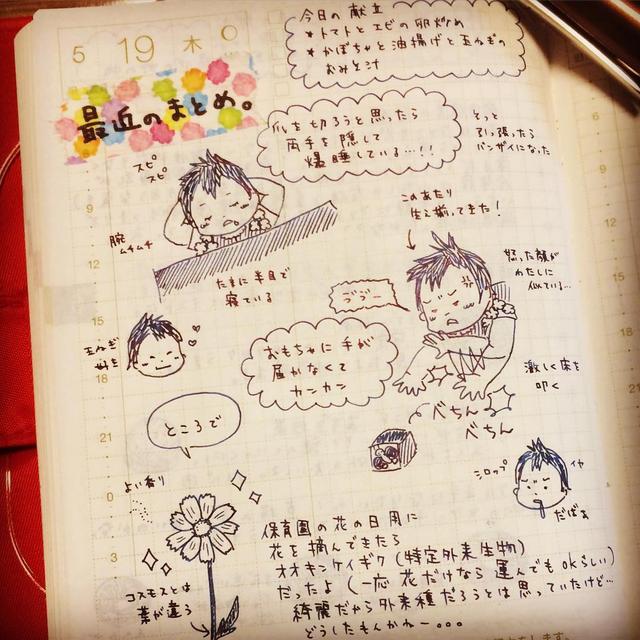 5 19 木
今日の献立
*トマトとエビの卵炒め
*かぼちゃと油揚げと玉ねぎの
おみそ汁
最近のまとめ。
爪を切ろうと思ったら
両手を隠して
爆睡している…!!
そっと
引っ張ったら
バンザイになった
スピ
スピ
腕
ムチムチ
たまに半目で
寝ている
このあたり
生え揃ってきた!
怒った顔が
わたしに
似ている…
ブブー
玉ねぎ
好き
おもちゃに手が
届かなくて
カンカン
激しく床を
叩く
べちん
べちん
ところで
シロップ
イヤ
だばぁ
よい香り
コスモスとは
葉が違う
保育園の花の日用に
花を摘んできたら
オオキンケイギク(特定外来生物)
だったよ(一応花だけなら運んでもokらしい)
綺麗だから外来種だろうとは思っていたけど…
どうしたもんかねー…。
9
12
15
18
21
0
3
6